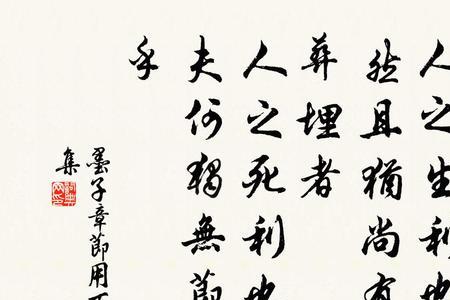 人之生利也
然且猶尚有
葬埋者
人之死利也
夫何獨無節
乎
墨子章節用
集